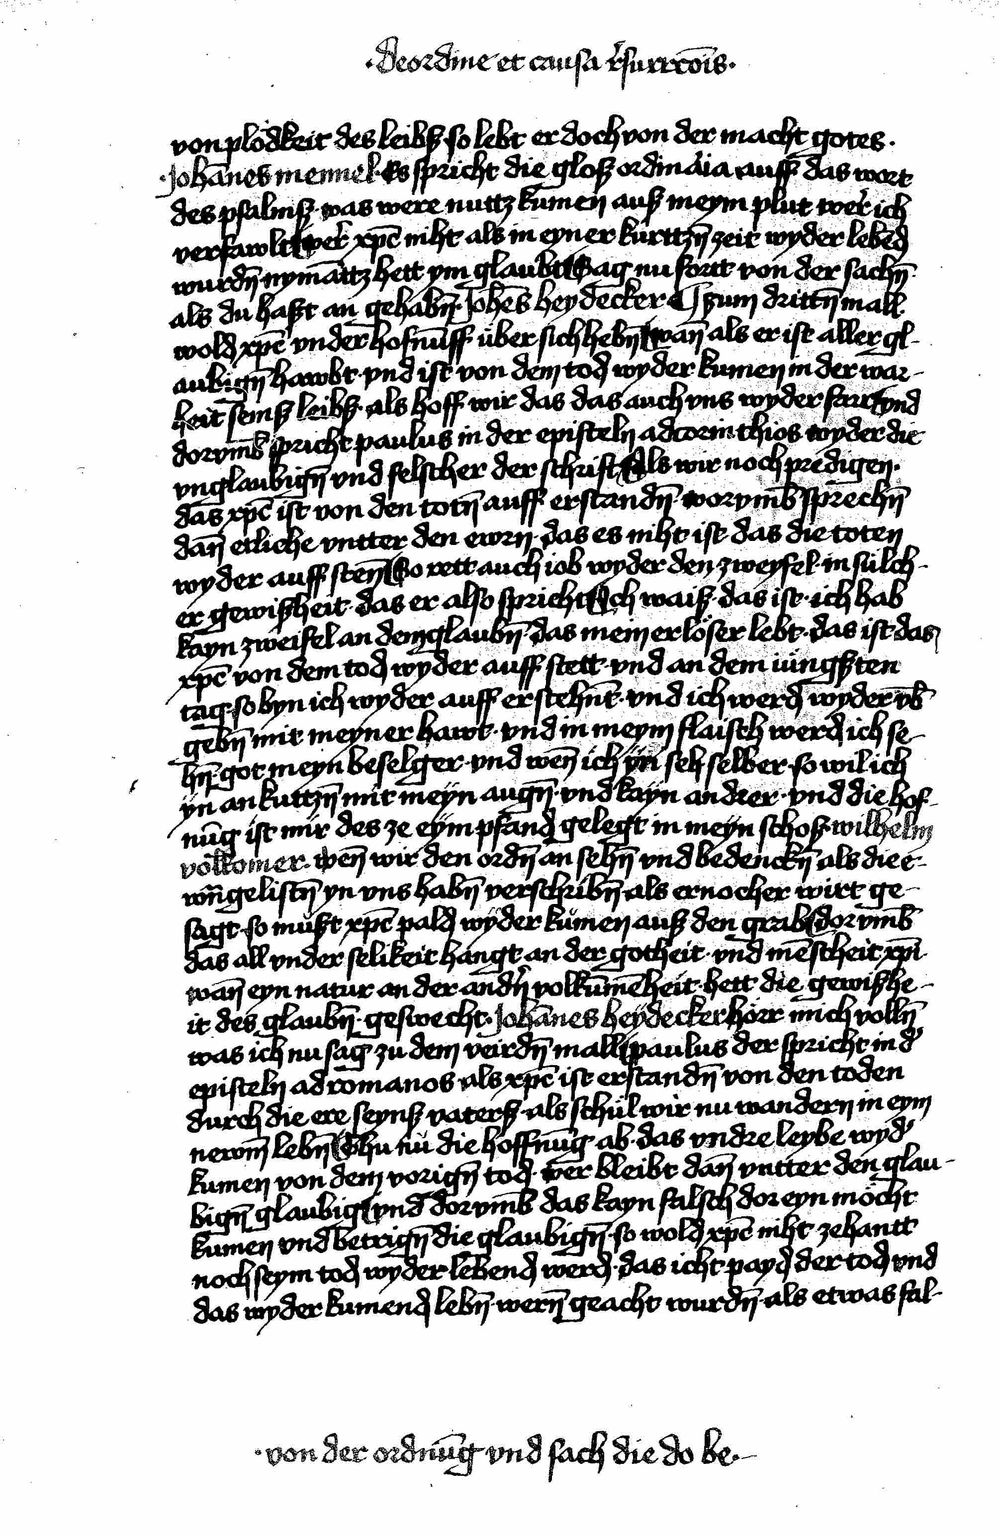 ·de ordine et causa r̃surrecc̄ois·
von plodkeit des leibß so lebt er doch von der macht gotes·
·Johānes mennel· Es spricht die gloß ordinaria auff das wort
des psalmß· was were nuttz kumen auß meym plut wer̃ ich
verfawlt wer̃ xp̄c niht als in eyner kurttzn̄ zeit wyder lebēd
wurdn̄ nymāttz hett ym glaubt Sag nu fortt von der sachn̄
als du haßt an gehabn̄· Johēs heydecker ¶ zum drittn̄ mall
wold xp̄c vnder hofnūff über sich hebn̄ wān als er ist aller gl-
aubign̄ hawbt· vnd ist von dem tod wyder kumen in der war-
heit seinß leibß· als hoff wir das das auch vns wyder far vnd
dorvmb̄ spricht paulus in der episteln ad corinthios wyder die
vnglaubign̄ vnd felscher der schrift Als wir noch predigen·
das xp̄c ist von den totn̄ auff erstandn̄· worvmb̄ sprechn̄
dān etliche vntter den ewrn· das es niht ist das die toten
wyder auff sten̄ So rett auch iob wyder den zweyfel· in sülch-
er gewißheit· das er also spricht Ich waiß· das ist· ich hab
kayn zweifel an dem glaubn̄· das mein erlöser lebt· das ist das
xp̄c von dem tod wyder auff stett· vnd an dem iüngsten
tag· so byn ich wyder auff erstehn̄t· vnd ich werd wyder vb̄
gebn̄ mit meyner hawt· vnd in meym flaisch werd ich se-
hn̄ got meyn beselger· vnd wen̄ ich yn seh selber· so wil ich
yn an kuttzn̄ mit meyn augn̄· vnd kayn andrer· vnd die hof-
nūg ist mir des ze eym pfand gelegt in meyn schoß· wilhelm
volkomer· Wen̄ wir den ordn̄ an sehn̄ vnd bedenckn̄ als die e-
wn̄gelistn̄ yn vns habn̄ verschribn̄· als er nocher wirt ge-
sagt· so mußt xp̄c pald wyder kumen auß den grab dorvmb̄
das all vnder selikeit hangt an der gotheit· vnd mēscheit xp̄i·
wān eyn natur an der andr̄n volkūmēheit· hett die gewißhe-
it des glaubn̄· geswecht· Johānes heydecker hörr mich volln̄
was ich nu sag zu dem veirdn̄ mall paulus der spricht in d'
episteln ad romanos als xp̄c ist erstandn̄ von den toden
durch die ere seynß vaterß· als schül wir nu wandern in eym
newm̄ lebn̄ Thu nü die hoffnūg ab· das vndre leybe wyd'
kumen von dem vorign̄ tod· wer bleibt dān vntter den glau-
bign̄ glaubig vnd dorvmb̄ das kayn falsch dor eyn möcht
kumen vnd betrign̄ die glaubign̄· so wold xp̄c niht zehantt
noch seym tod wyder lebend werd· das icht payd der tod vnd
das wyder kumend lebn̄· wern̄ geacht wurdn̄ als etwas fal-
·von der ordnūg vnd sach die do be·-